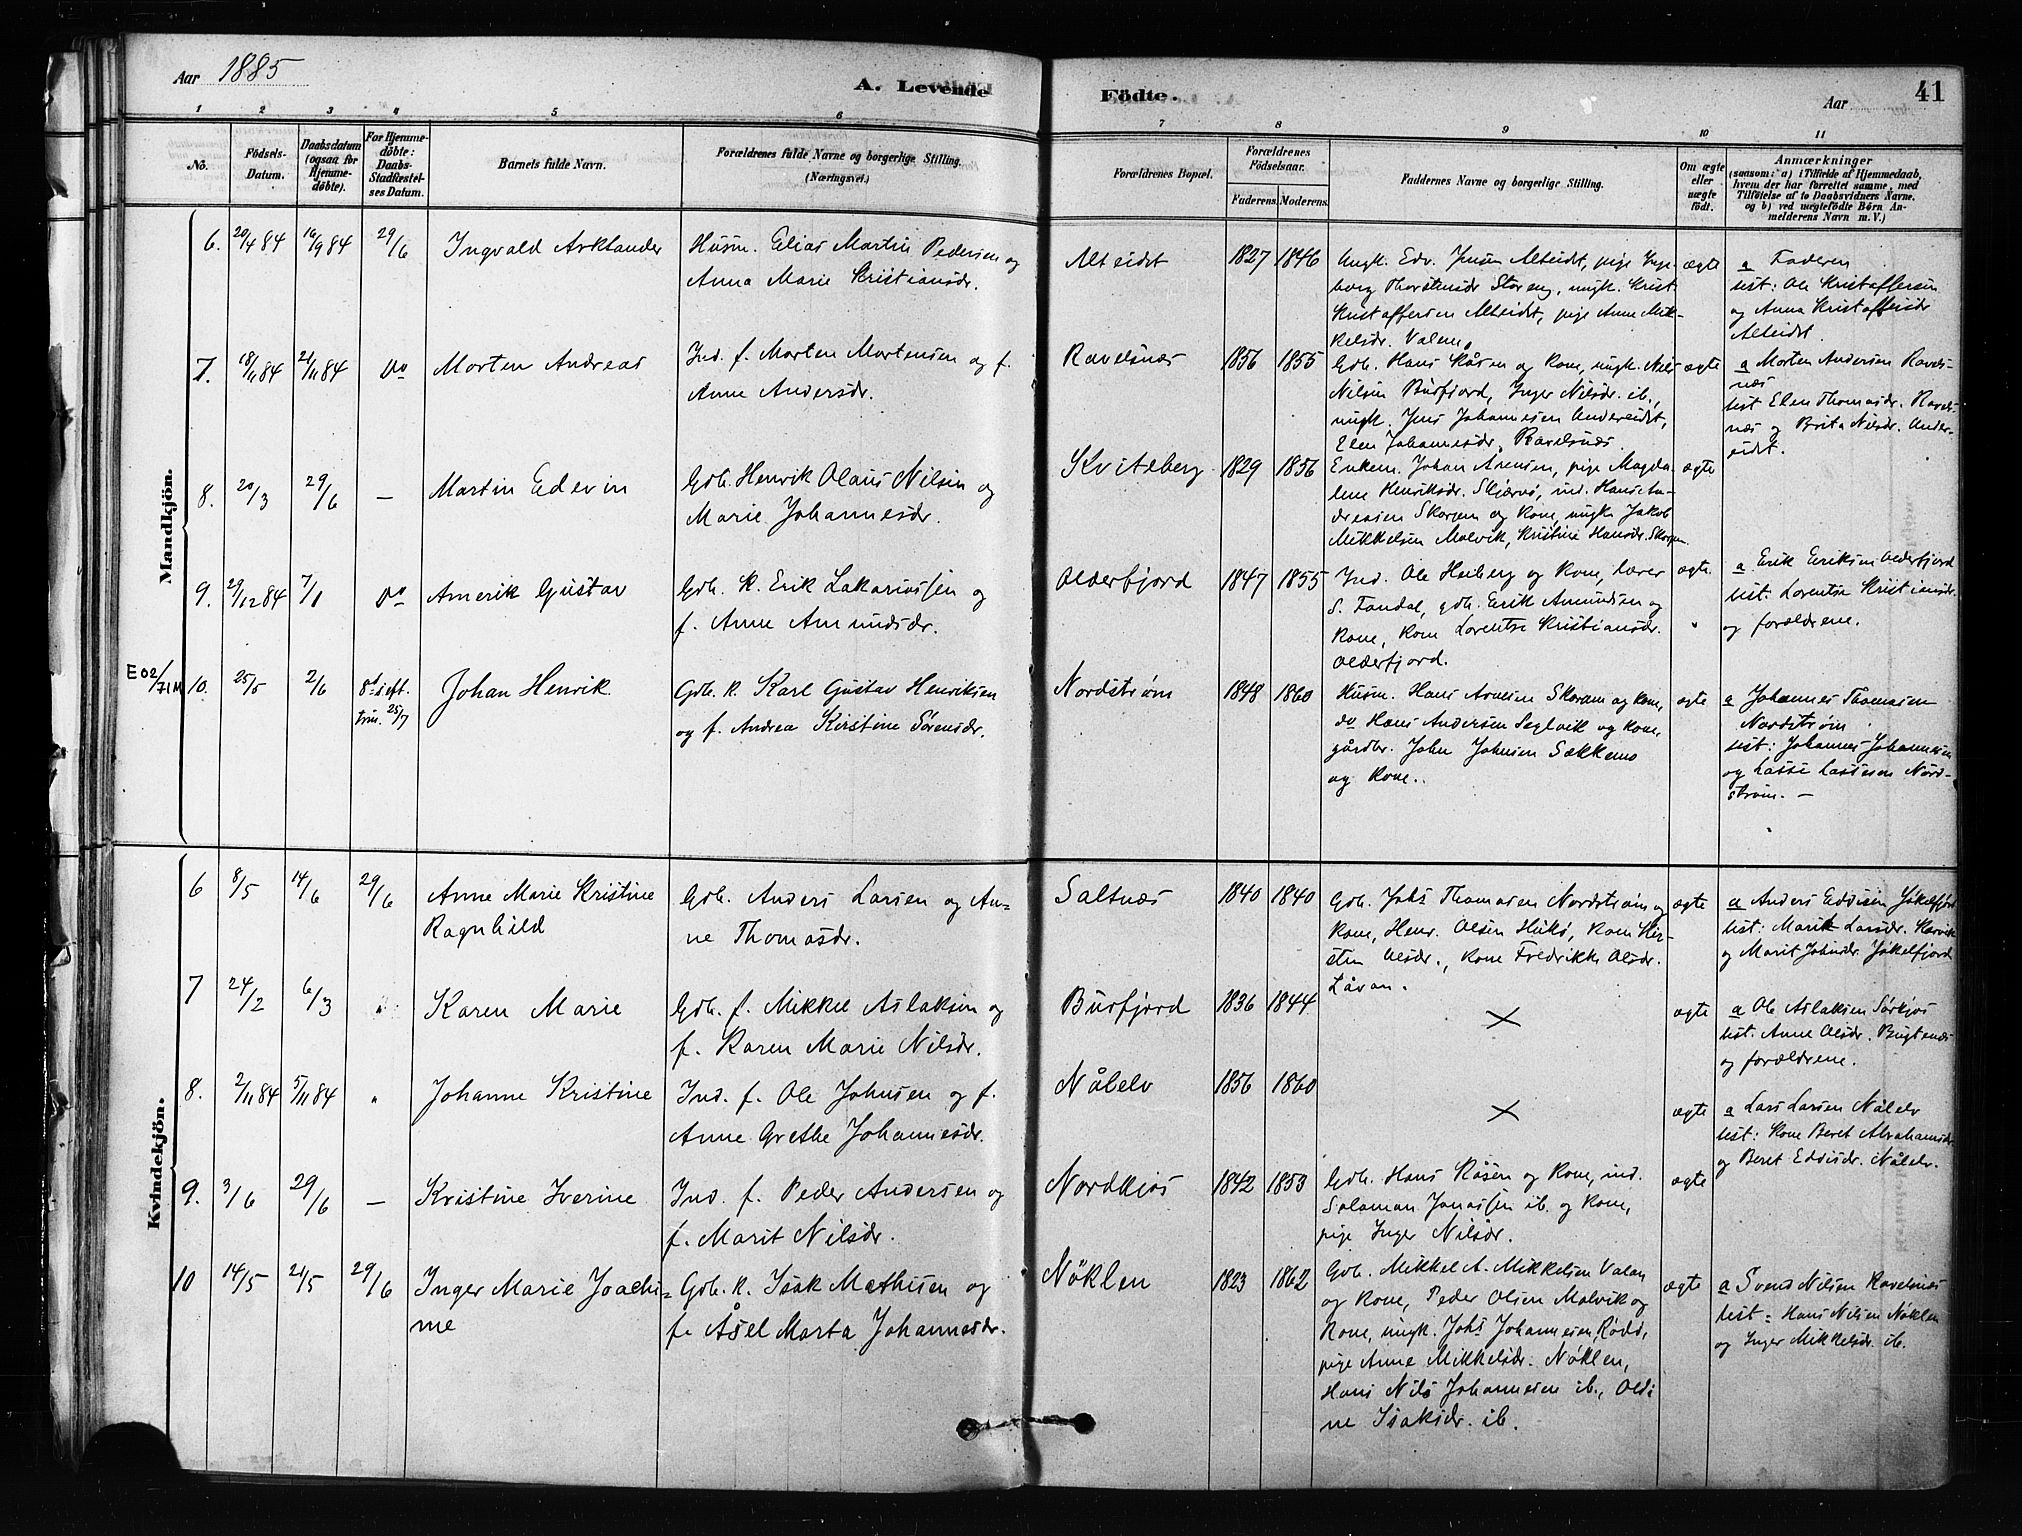 Aar 1885
A. Levende
Födte.
Aar
41
1 2 3 4 5 6 7 8 9 10 11
No.
Födsels-Datum.
Daabsdatum (ogsaa for Hjemme-döbte).
For Hjemme-döbte: Daabs-Stadfæstel-ses Datum.
Barnets fulde Navn.
Forældrenes fulde Navne og borgerlige Stilling.
(Næringsvei.)
Forældrenes Bopæl.
Forældrenes Födselsaar.
Faderens. Moderens.
Faddernes Navne og borgerlige Stilling.
Om ægte eller uægte födt.
Anmærkninger
(saasom: a) i Tilfælde af Hjemmedaab,
hvem der har forrettet samme, med
Tilföielse af to Daabsvidners Navne.
og b) ved uægtefödte Börn An-
melderens Navn m. V.)
Mandkjön.
6. 20/4 84 16/9 84 29/6 Ingvald Arklander
Husm. Elias Martin Pedersen og
Anna Marie Kristiansdr.
Alteidet 1827 1846
Ungk. Edv. Jensen Alteidet, pige Inge-
borg Thorstensdr Storeng, ungk. Krist
Kristoffersen Alteidet, pige Anne Mik-
kelsdr. Valen.
ægte
a Faderen
test: Ole Kristoffersen
og Anna Kristoffersdr
Alteidet.
7. 18/11 84 21/11 84 Do Morten Andreas
Ind. f. Morten Mortensen og f.
Anne Andersdr.
Ravelsnæs 1856 1855
Gdb. Hans Kåsen og Kone, ungk. Nils
Nilsen Burfjord, Inger Nilsdr. ib.,
ungk. Jens Johannesen Undereidet,
Elen Johannesdr. Ravelsnæs.
ægte
a Morten Andersen Ravels-
næs
test Elen Thomasdr. Ravels-
næs og Brita Nilsdr. Under-
eidet.
8. 20/3 29/6 — Martin Edevin
Gdb. Henrik Olaus Nilsen og
Marie Johannesdr.
Kviteberg 1829 1856
Enkem. Johan Arensen, pige Magda-
lene Henriksdr. Skjærvø, ind. Hans An-
dreasen Skorpen og Kone, ungk Jakob
Mikkelsen Malvik, Kristine Hansdr. Skorpen.
ægte
9. 29/12 84 7/1 Do Amerik Gustav
Gdb. K. Erik Zakariassen og
f. Anne Amundsdr.
Olderfjord 1847 1855
Ind. Ole Heiberg og Kone, lærer
S. Tandal, gdb. Erik Amundsen og
Kone, Kone Lorentse Kristiansdr.
Olderfjord.
ægte.
a Erik Eriksen Olderfjord
test. Lorentse Kristiansdr.
og forældrene.
E02/71M
10. 25/5 2/6 8d s. eft. trin. 25/7 Johan Henrik.
Gdb. K. Karl Gustav Henriksen
og f. Andrea Kirstine Sørensdr.
Nordstrøm 1848 1860
Husm. Hans Arnesen Skorpen og kone,
do Hans Andersen Seglvik og kone,
gårdbr. John Johnsen Sækkemo
og Kone..
ægte
a Johannes Thomasen
Nordstrøm
test: Johannes Johannesen
og Lasse Lassesen Nord-
strøm. —
Kvindekjön.
6 8/5 14/6 29/6 Anne Marie Kristine
Ragnhild
Gdb. Anders Larsen og An=
ne Thomasdr.
Saltnæs 1840 1840
Gdb. Johs Thomasen Nordstrøm og
Kone, Henr. Olsen Hukø, Kone Kir-
sten Olsdr., Kone Fredrikke Olsdr.
Låvan.
ægte
a Anders Eddisen Jøkelfjord
test: Marit Larsdr. Karvik
og Marit Johnsdr. Jøkelfjord
7 24/2 6/3 " Karen Marie
Gdb. f. Mikkel Aslaksen og
f. Karen Marie Nilsdr.
Burfjord 1836 1844
×
ægte
a Ole Aslaksen Sørkjos
test. Anne Olsdr. Bugtenæs
og forældrene.
8. 2/11 84 5/11 84 " Johanne Kristine
Ind. f. Ole Johnsen og f.
Anne Grethe Johannesdr.
Nålelv 1856 1860
×
ægte
a Lars Larsen Nålelv
test: Kone Beret Abrahamsdr
og Beret Eddisdr. Nålelv.
9. 3/6 29/6 — Kristine Iverine
Ind. f. Peder Andersen og
f. Marit Nilsdr.
Nordkjos 1842 1853
Gdb. Hans Kåsen og Kone, ind.
Salamon Jonassen ib. og Kone,
pige Inger Nilsdr.
ægte
10 14/5 21/5 29/6 Inger Marie Joachi=
me
Gdb. K. Isak Mathisen og
f. Åsel Marta Johannesdr.
Nøklen 1823 1862
Gdb. Mikkel A. Mikkelsen Valan
og Kone, Peder Olsen Malvik og
Kone, ungk. Johs Johannesen Rødø,
pige Anne Mikkelsdr. Nøklen,
Hans Nils Johannesen ib., Oldi
ne Isaksdr. ib.
ægte
a Svend Nilsen Ravelsnæs
test: Hans Nilsen Nøklen
og Inger Mikkelsdr. ib.